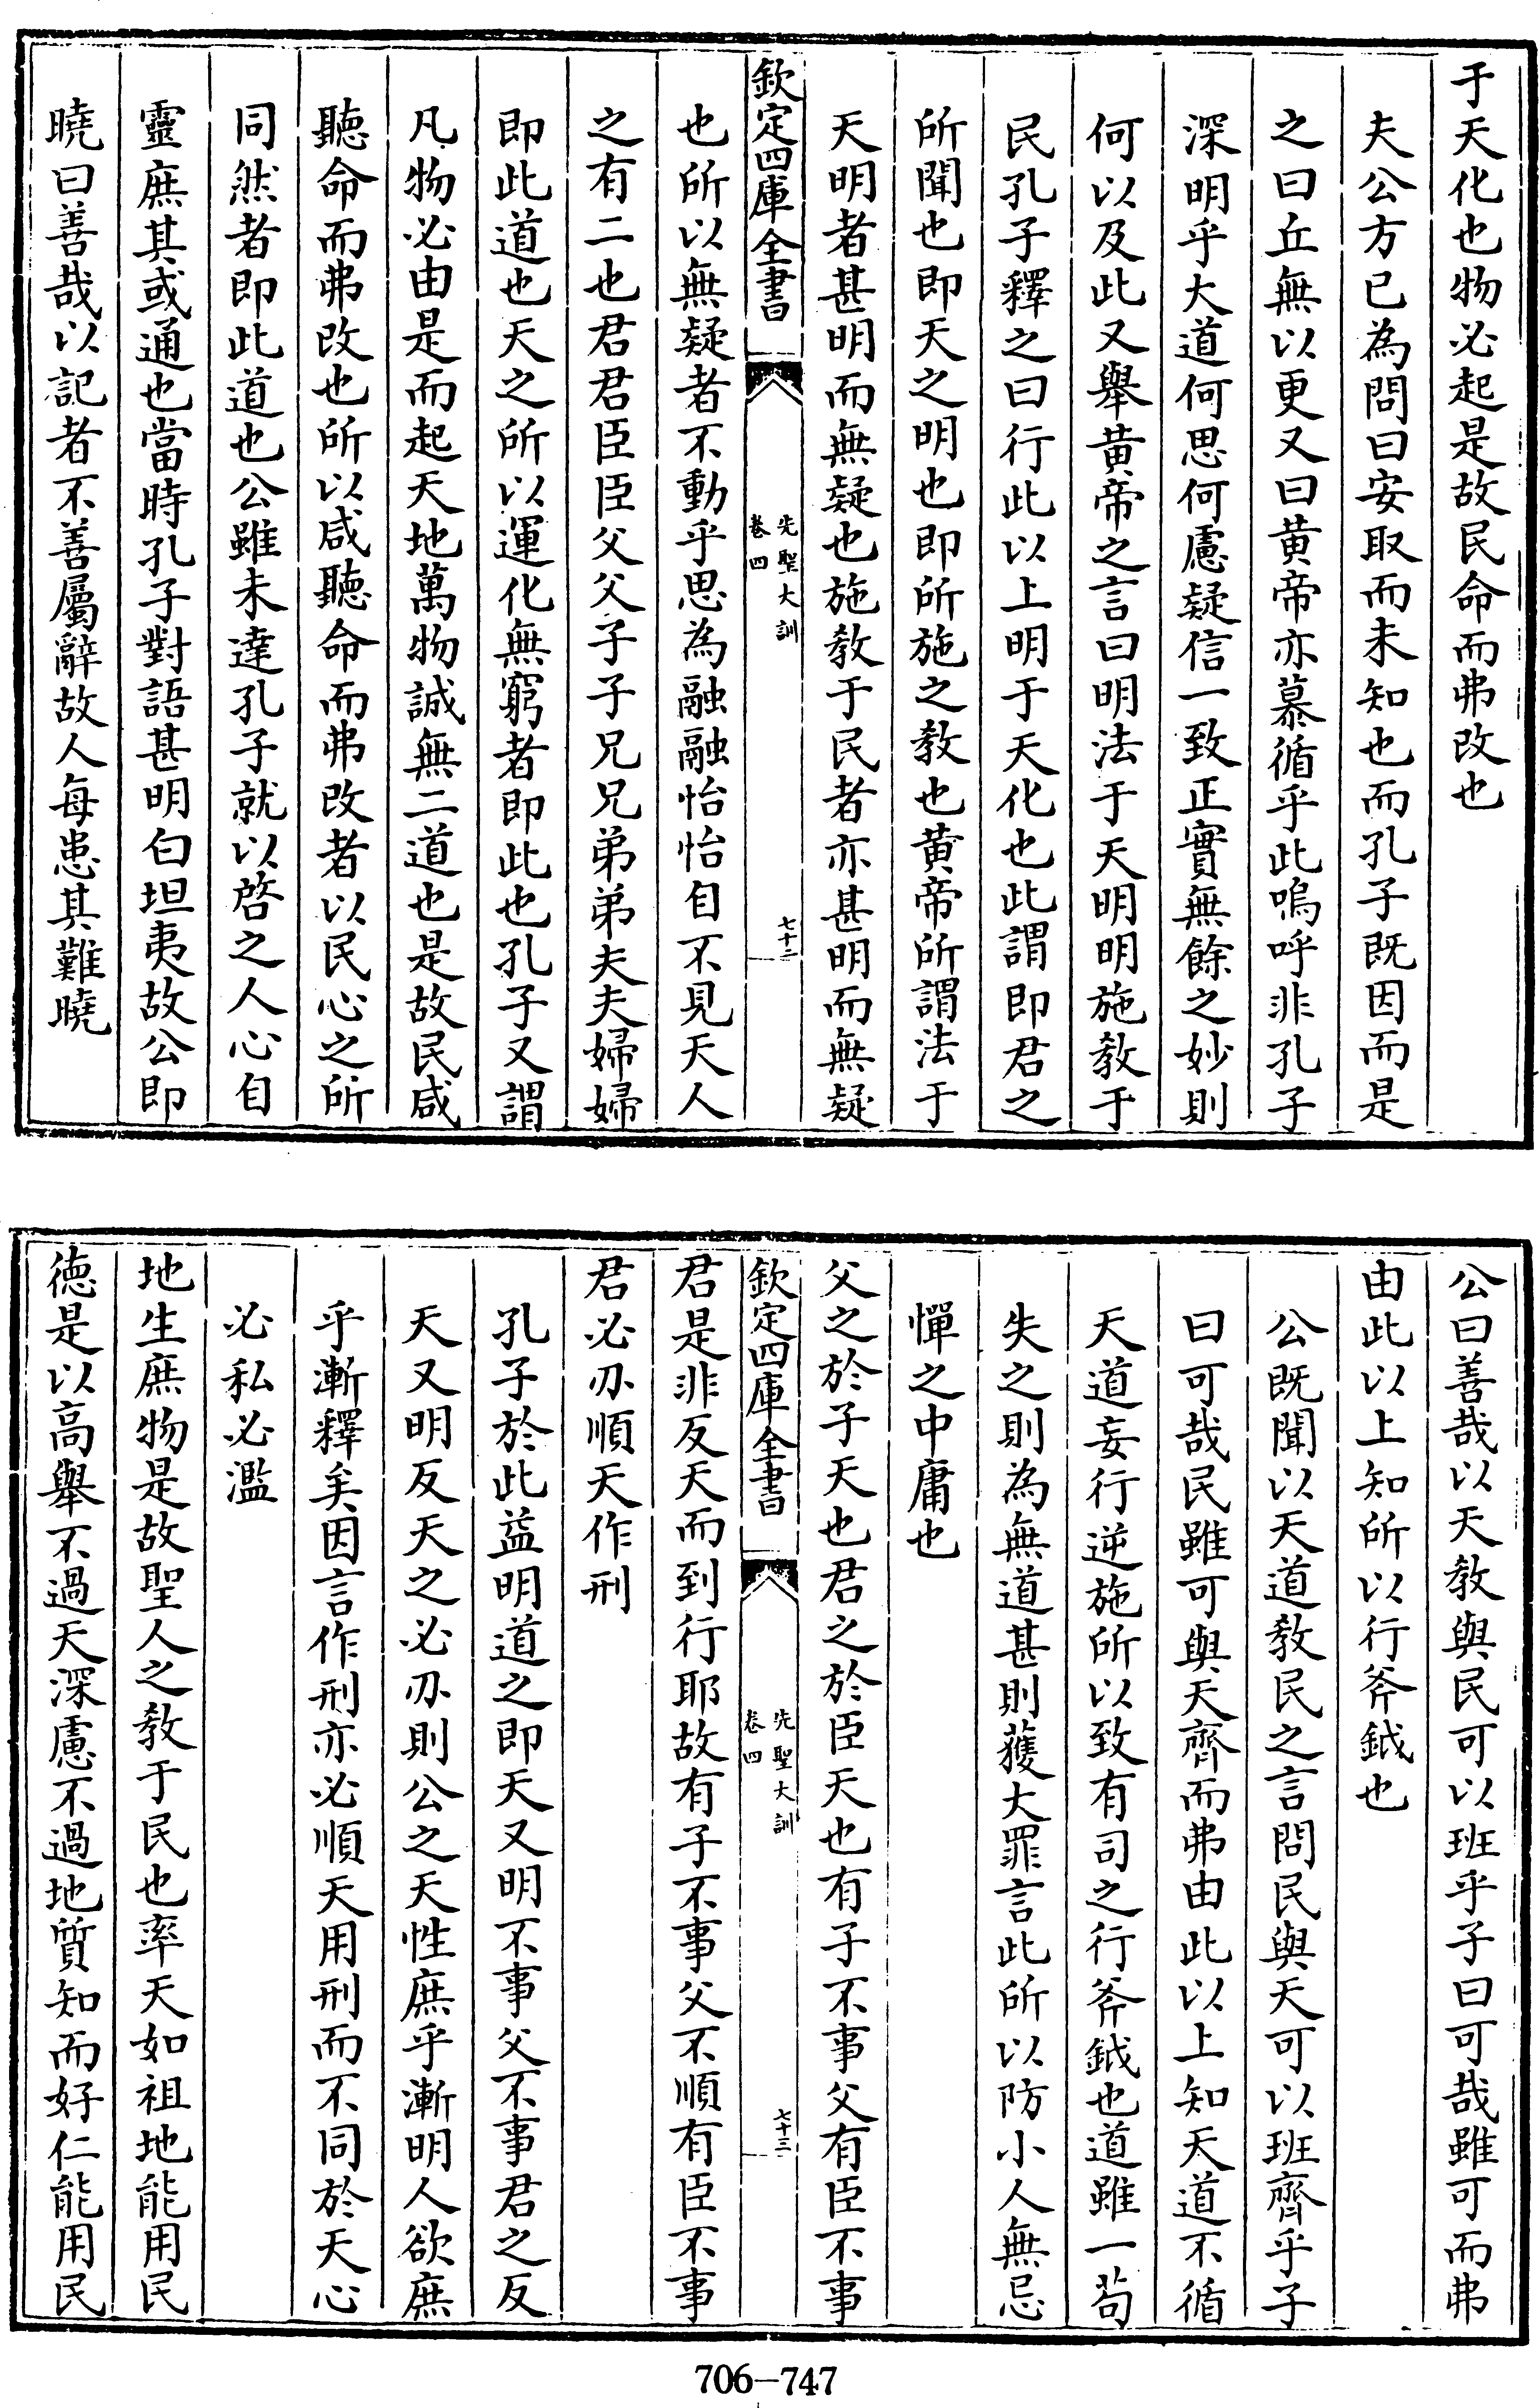 于天化也物必起是故民命而弗改也
夫公方已為問曰安取而未知也而孔子既因而是
之曰丘無以更又曰黄帝亦慕循乎此嗚呼非孔子
深明乎大道何思何慮疑信一致正實無餘之妙則
何以及此又舉黄帝之言曰明法于天明明施教于
民孔子釋之曰行此以上明于天化也此謂即君之
所聞也即天之明也即所施之教也黄帝所謂法于
天明者甚明而無疑也施教于民者亦甚明而無疑
欽定四庫全書
先聖大訓
卷四
七十二
也所以無疑者不動乎思為融融怡怡自不見天人
之有二也君君臣臣父父子子兄兄弟弟夫夫婦婦
即此道也天之所以運化無窮者即此也孔子又謂
凡物必由是而起天地萬物誠無二道也是故民咸
聽命而弗改也所以咸聽命而弗改者以民心之所
同然者即此道也公雖未達孔子就以啓之人心自
靈庶其或通也當時孔子對語甚明白坦夷故公即
曉曰善哉以記者不善屬辭故人每患其難曉
公曰善哉以天教與民可以班乎子曰可哉雖可而弗
由此以上知所以行斧鉞也
公既聞以天道教民之言問民與天可以班齊乎子
曰可哉民雖可與天齊而弗由此以上知天道不循
天道妄行逆施所以致有司之行斧鉞也道雖一苟
失之則為無道甚則蒦大罪言此所以防小人無忌
憚之中庸也
父之於子天也君之於臣天也有子不事父有臣不事
欽定四庫全書
先聖大訓
卷四
七十三
君是非反天而到行耶故有子不事父不順有臣不事
君必刅順天作刑
孔子於此益明道之即天又明不事父不事君之反
天又明反天之必刅則公之天性庶乎漸明人欲庶
乎漸釋矣因言作刑亦必順天用刑而不同於天心
必私必濫
地生庶物是故聖人之教于民也率天如祖地能用民
徳是以高舉不過天深慮不過地質知而好仁能用民
706-747